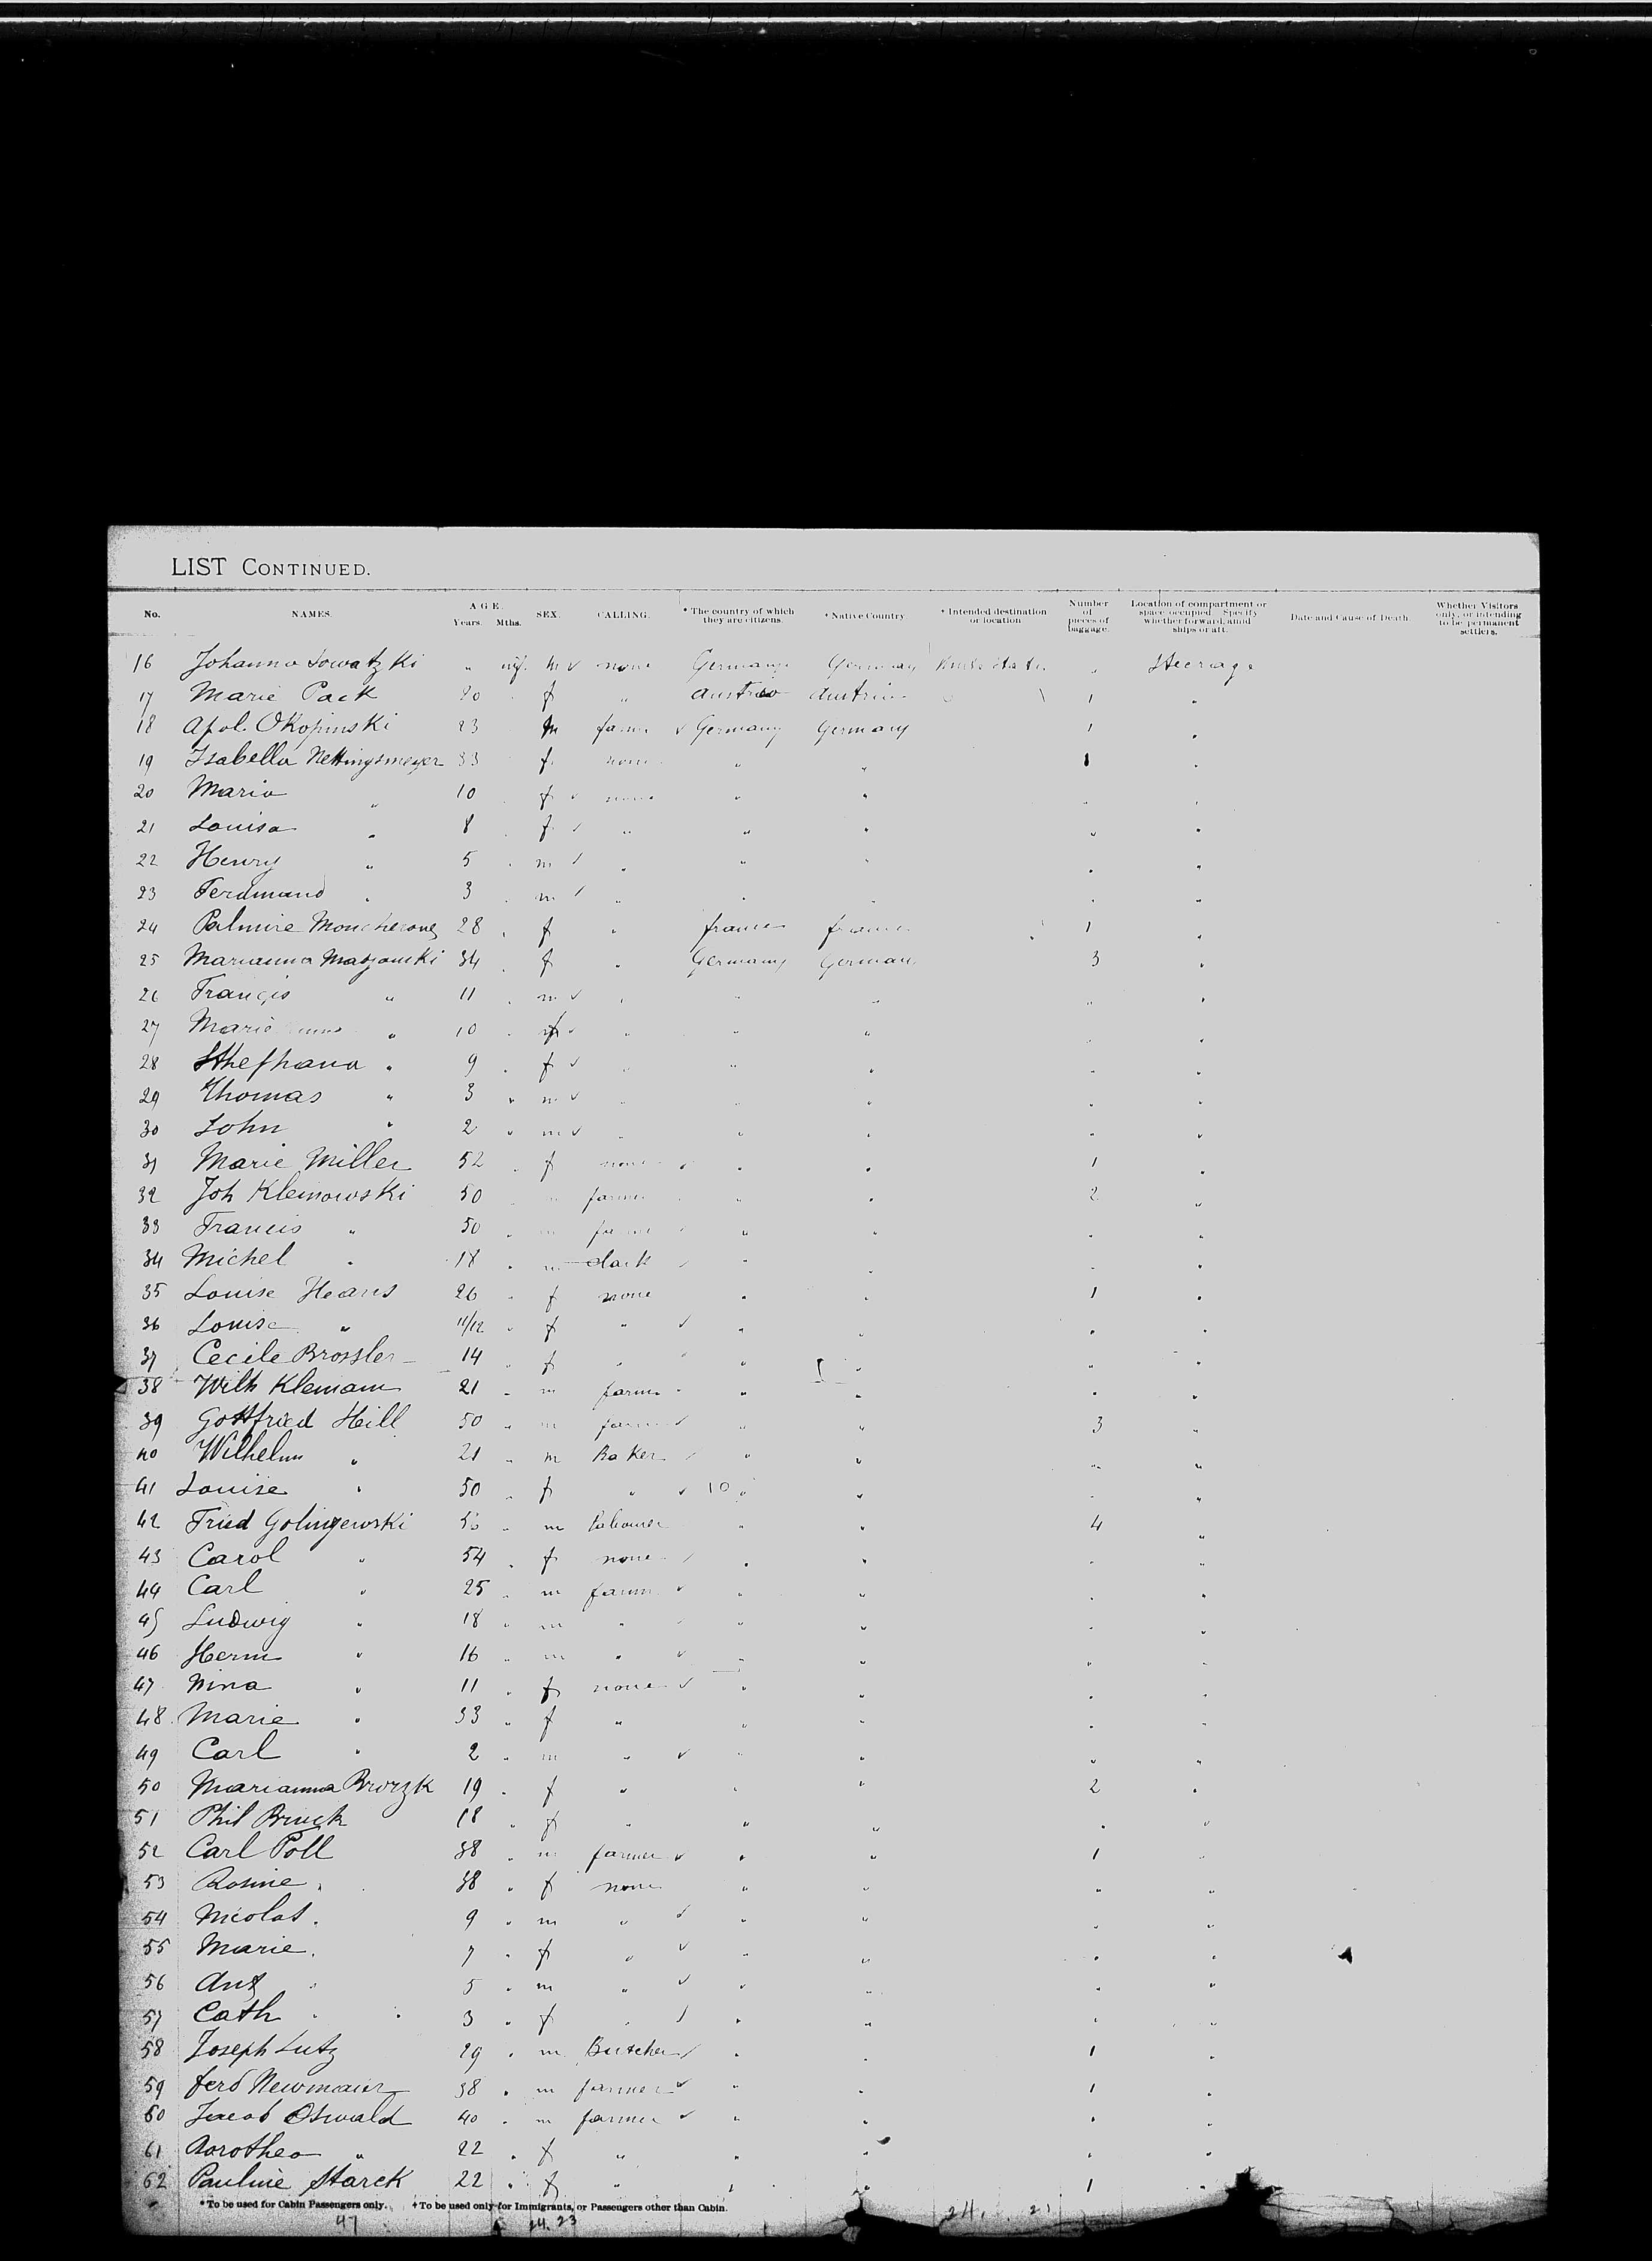 LIST CONTINUED.
No. NAMES. AGE. Years. Mths. SEX. CALLING. * The country of which they are citizens. + Native Country + Intended destination or location Number of pieces of baggage. Location of compartment or space occupied Specify whether forward, amid ships or aft. Date and Cause of Death. Whether Visitors only, or intending to be permanent settlers.
16 Johanna Sowatzki " inf. m ✓ none Germany Germany " Steerage
17 Marie Pack 20 f " Austria Austria 1 "
18 Apol. Okopinski 23 m farmer ✓ Germany Germany 1 "
19 Isabella Nettingsmeyer 33 f none " " 1 "
20 Maria " 10 f ✓ none " " " "
21 Louisa " 8 f ✓ " " " " "
22 Henry " 5 m ✓ " " " " "
23 Ferdinand " 3 m ✓ " " " " "
24 Palmire 28 f " france france 1 "
25 Marianna 34 f " Germany German 3 "
26 Francis " 11 m ✓ " " " " "
27 Marie " 10 f ✓ " " " " "
28 Sthephana " 9 f ✓ " " " " "
29 Thomas " 3 " m ✓ " " " " "
30 John " 2 " m ✓ " " " " "
31 Marie Miller 52 f none ✓ " " 1 "
32 Joh Kleinowski 50 m farmer " " 2 "
33 Francis " 50 " m " " " "
34 Michel " 18 " m " " " "
35 Louise Hears 26 " f none " " 1 "
36 Louise " 11/12 " f " ✓ " " " "
37 Cecile Brossler 14 " f " ✓ " " " "
38 Wilh Klemann 21 " m farmer " " " "
39 Gottfried Heill 50 " m farmer ✓ " " 3 "
40 Wilhelm " 21 " m Baker ✓ " " " "
41 Louise " 50 " f " ✓ 10 " " " "
42 Fried Golingewski " m Labourer " " 4 "
43 Carol " 54 " f none ✓ " " " "
44 Carl " 25 " m farmer ✓ " " " "
45 Ludwig " 18 " m " ✓ " " " "
46 Herm " 16 " m " ✓ " " " "
47 Nina " 11 " f none ✓ " " " "
48 Marie " 33 " f " " " " "
49 Carl " 2 " m " ✓ " " " "
50 Marianna 19 " f " " " 2 "
51 Phil Bruck 18 " f " " " " "
52 Carl Poll 38 " m farmer ✓ " " 1 "
53 Rosine " 38 " f none " " " "
54 Nicolas " 9 " m " ✓ " " " "
55 Marie " 7 " f " ✓ " " " "
56 Ant " 5 " m " ✓ " " " "
57 Cath " 3 " f " ✓ " " " "
58 Joseph Lutz 29 " m Butcher ✓ " " 1 "
59 ferd Newmaier 38 " m farmer ✓ " " 1 "
60 Jacob Oswald 40 " m farmer ✓ " " " "
61 Dorothea " 22 " f " " " " "
62 Pauline Starck 22 " f " " " 1 "
* To be used for Cabin Passengers only. + To be used only for Immigrants, or Passengers other than Cabin.
47 24. 23 24.